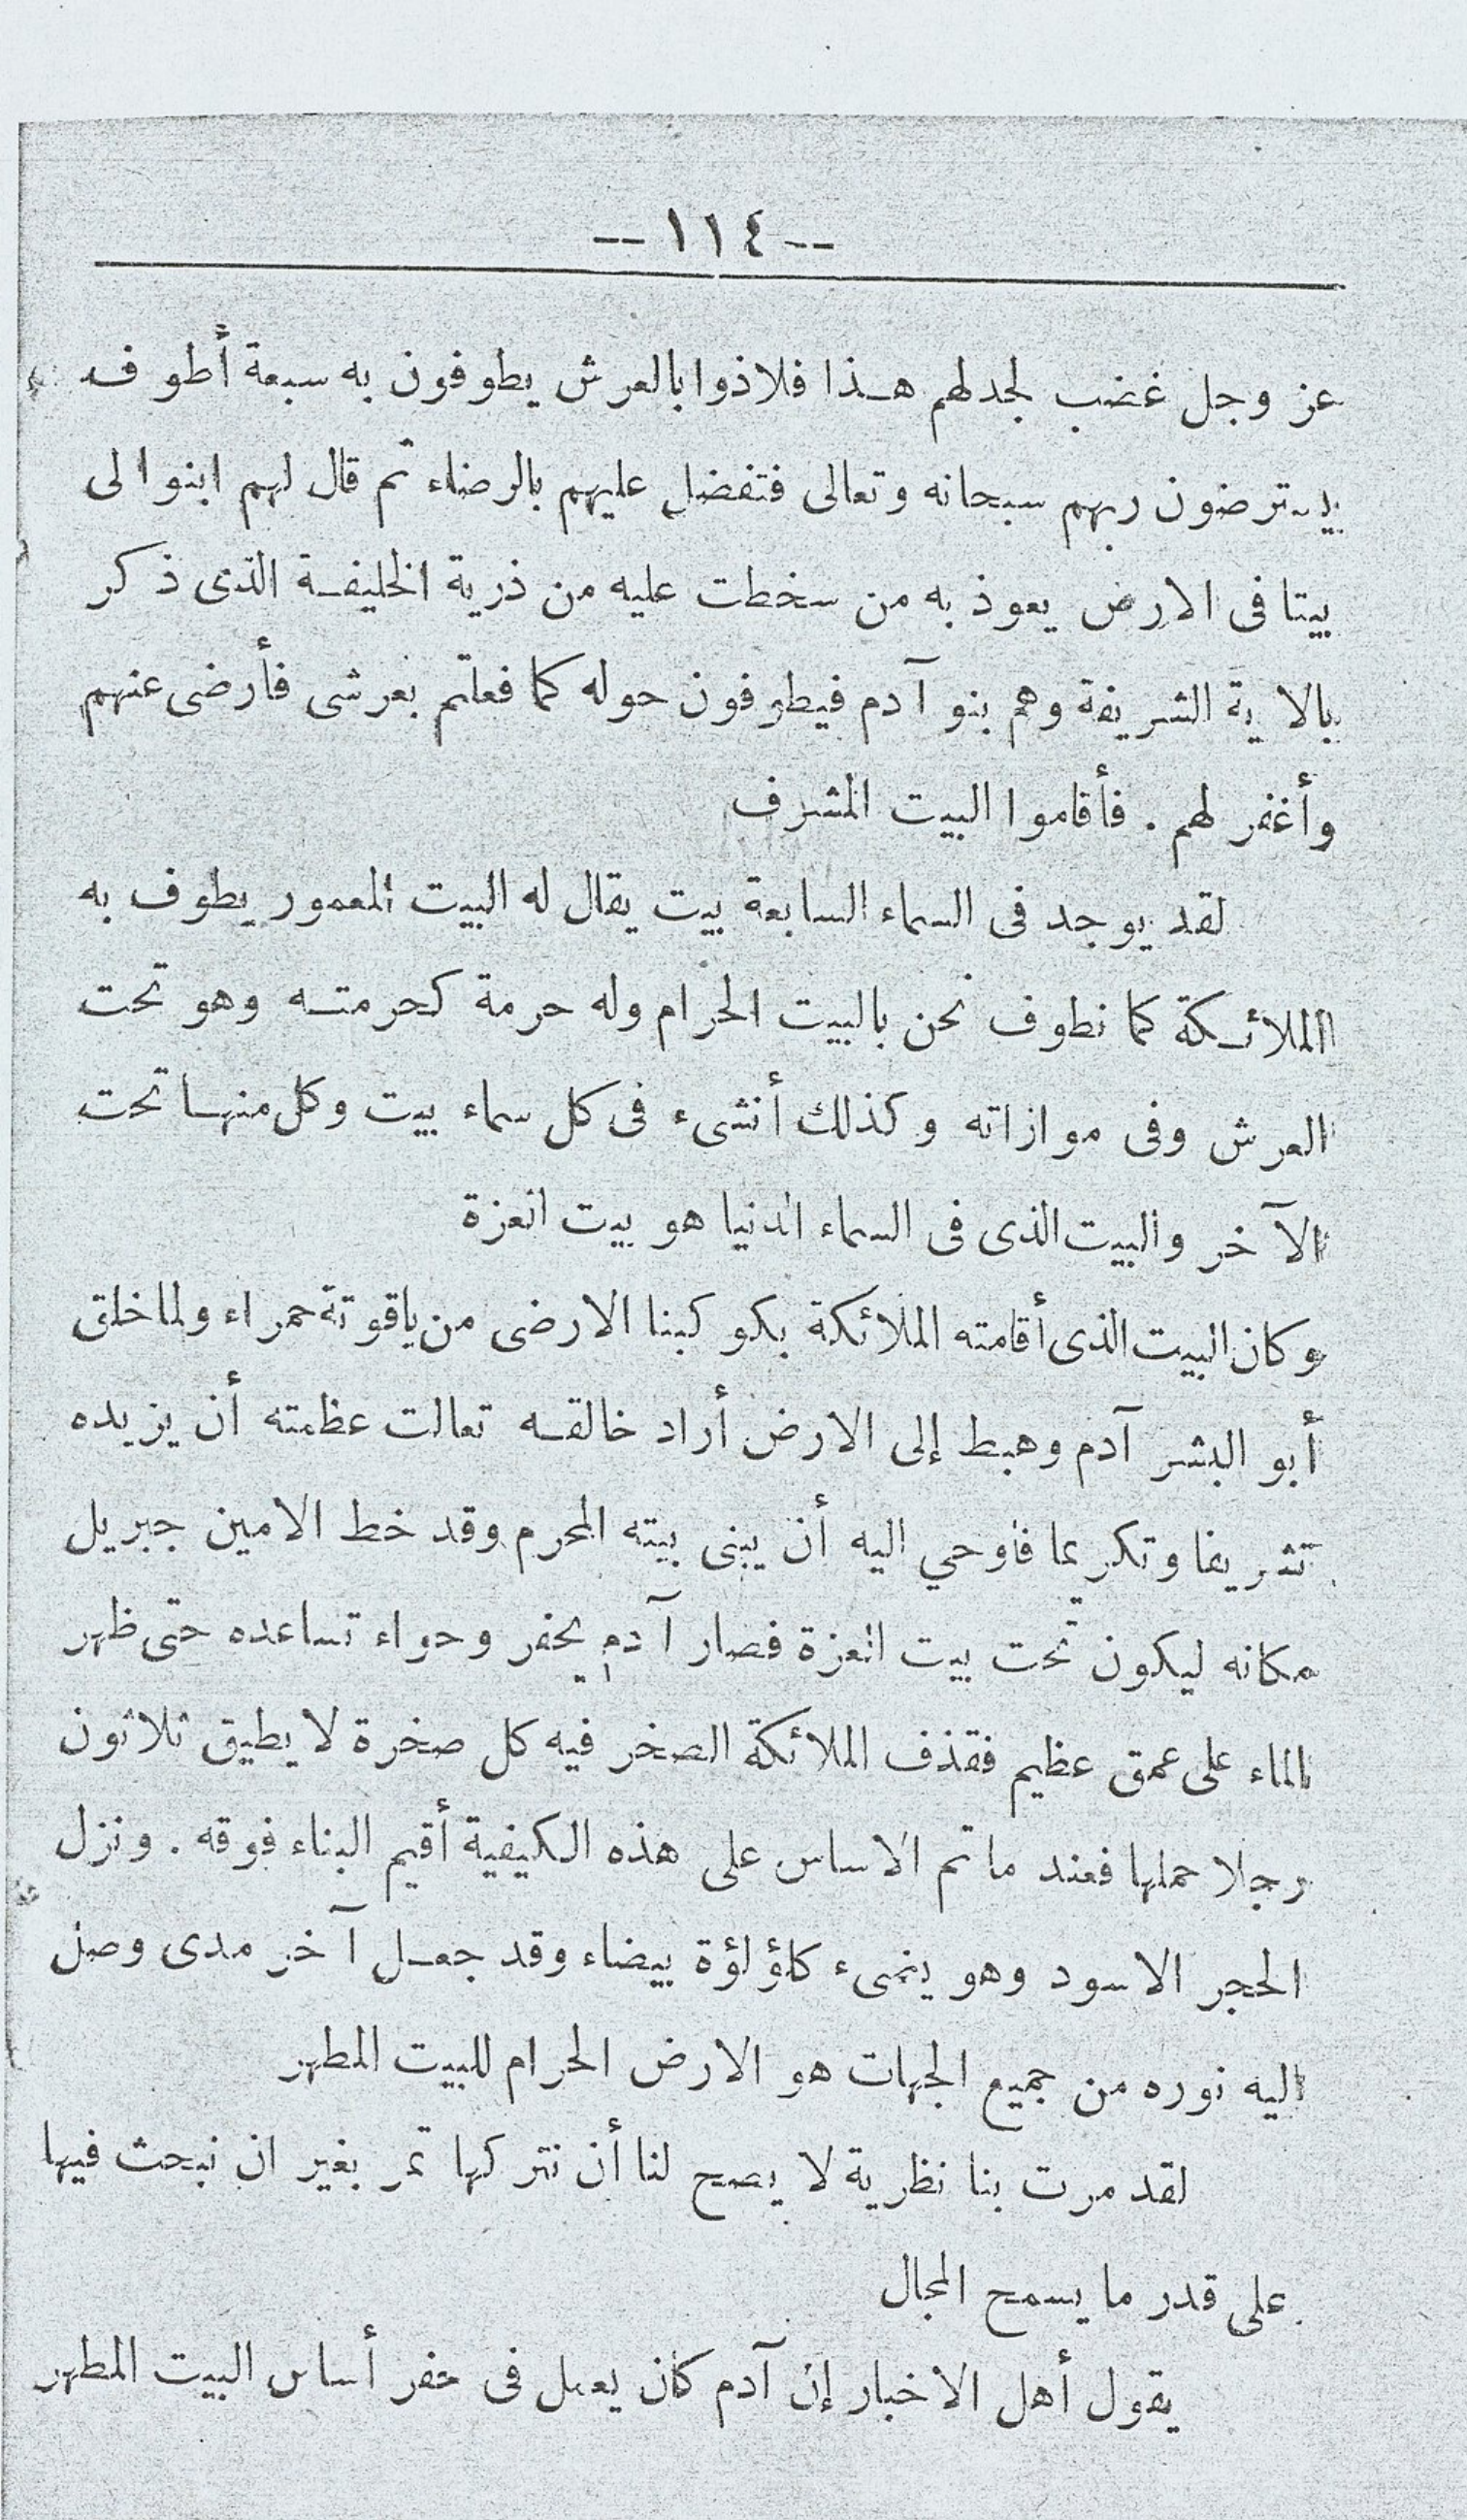 -- ١١٤ --
عز وجل غضب لجدلهم هذا فلاذوا بالعرش يطوفون به سبعة أطوف
يسترضون ربهم سبحانه وتعالى فتفضل عليهم بالرضاء ثم قال لهم ابنوا لى
بيتا فى الارض يعوذ به من سخطت عليه من ذرية الخليفة الذى ذكر
بالاية الشريفة وهم بنو آدم فيطوفون حوله كما فعلتم بعرشى فأرضى عنهم
وأغفر لهم . فأقاموا البيت المشرف
لقد يوجد فى السماء السابعة بيت يقال له البيت المعمور يطوف به
الملائكة كما نطوف نحن بالبيت الحرام وله حرمة كحرمته وهو تحت
العرش وفى موازاته وكذلك أنشىء فى كل سماء بيت وكل منها تحت
الآخر والبيت الذى فى السماء الدنيا هو بيت العزة
وكان البيت الذى أقامته الملائكة بكوكبنا الارضى من ياقوتة حمراء ولما خلق
أبو البشر آدم وهبط إلى الارض أراد خالقه تعالت عظمته أن يزيده
تشريفا وتكريما فاوحي اليه أن يبنى بيته المحرم وقد خط الامين جبريل
مكانه ليكون تحت بيت العزة فصار آدم يحفر وحواء تساعده حتى ظهر
الماء على عمق عظيم فقذف الملائكة الصخر فيه كل صخرة لا يطيق ثلاثون
رجلا حملها فعند ما تم الاساس على هذه الكيفية أقيم البناء فوقه . ونزل
الحجر الاسود وهو يضىء كلؤلؤة بيضاء وقد جعل آخر مدى وصل
اليه نوره من جميع الجهات هو الارض الحرام للبيت المطهر
لقد مرت بنا نظرية لا يصح لنا أن نتركها تمر بغير ان نبحث فيها
على قدر ما يسمح المجال
يقول أهل الاخبار إن آدم كان يعمل فى حفر أساس البيت المطهر